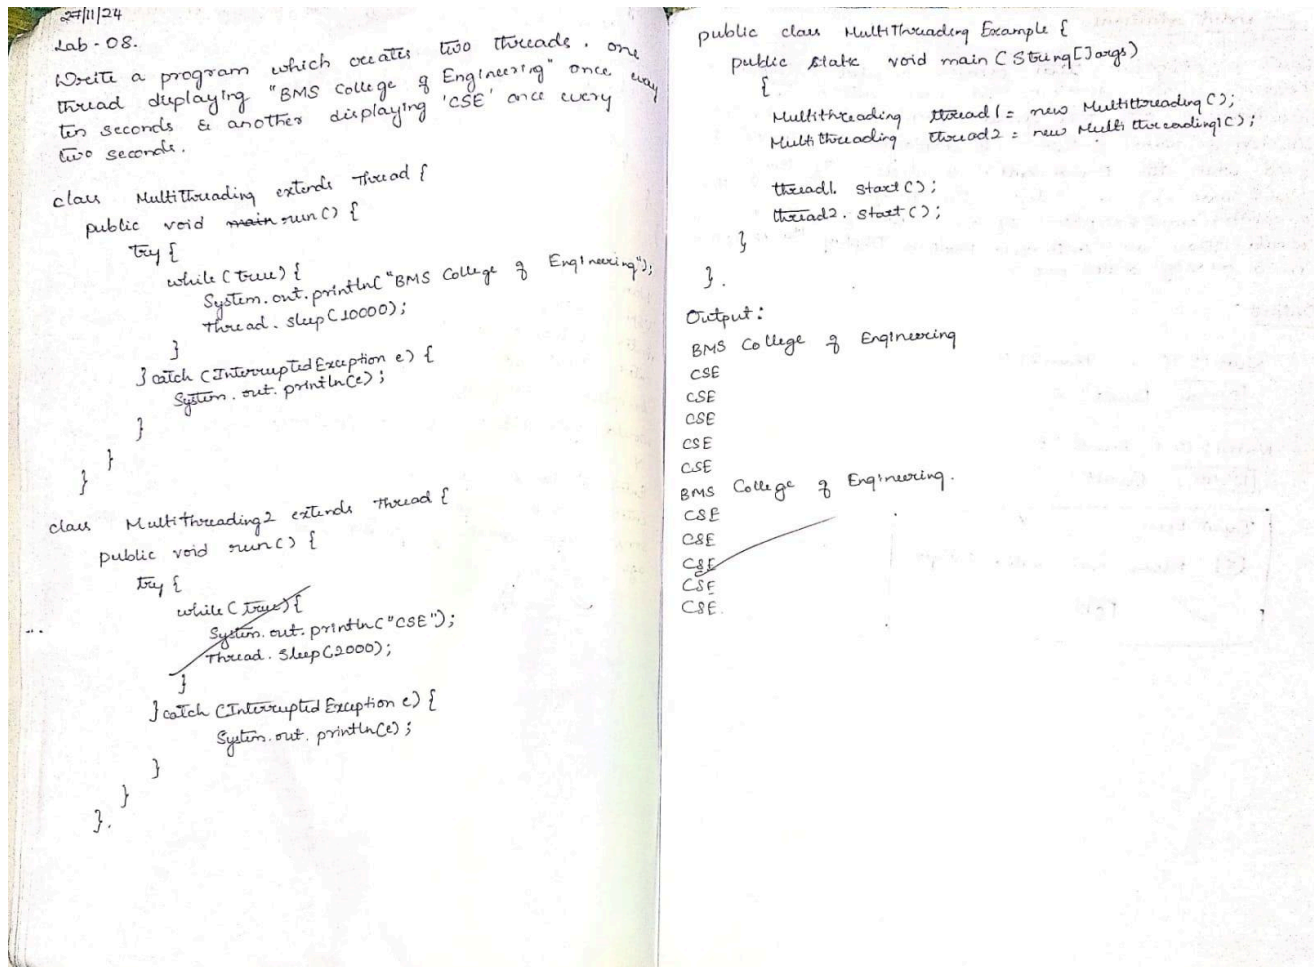 27/11/24
Lab - 08.
Write a program which creates two threads, one
thread displaying "BMS College of Engineering" once every
ten seconds & another displaying 'CSE' once every
two seconds.
class Multithreading extends Thread {
public void main run() {
try {
while (true) {
System.out.println("BMS College of Engineering");
Thread.sleep(10000);
}
} catch (InterruptedException e) {
System.out.println(e);
}
}
}
class Multithreading2 extends Thread {
public void run() {
try {
while (true) {
System.out.println("CSE");
Thread.sleep(2000);
}
} catch (InterruptedException e) {
System.out.println(e);
}
}
}.
public class MultiThreading Example {
public static void main (String[] args)
{
Multithreading thread1 = new Multithreading();
Multithreading thread2 = new Multithreading1();
thread1. start();
thread2. start();
}
}.
Output:
BMS College of Engineering
CSE
CSE
CSE
CSE
CSE
BMS College of Engineering.
CSE
CSE
CSE
CSE
CSE.